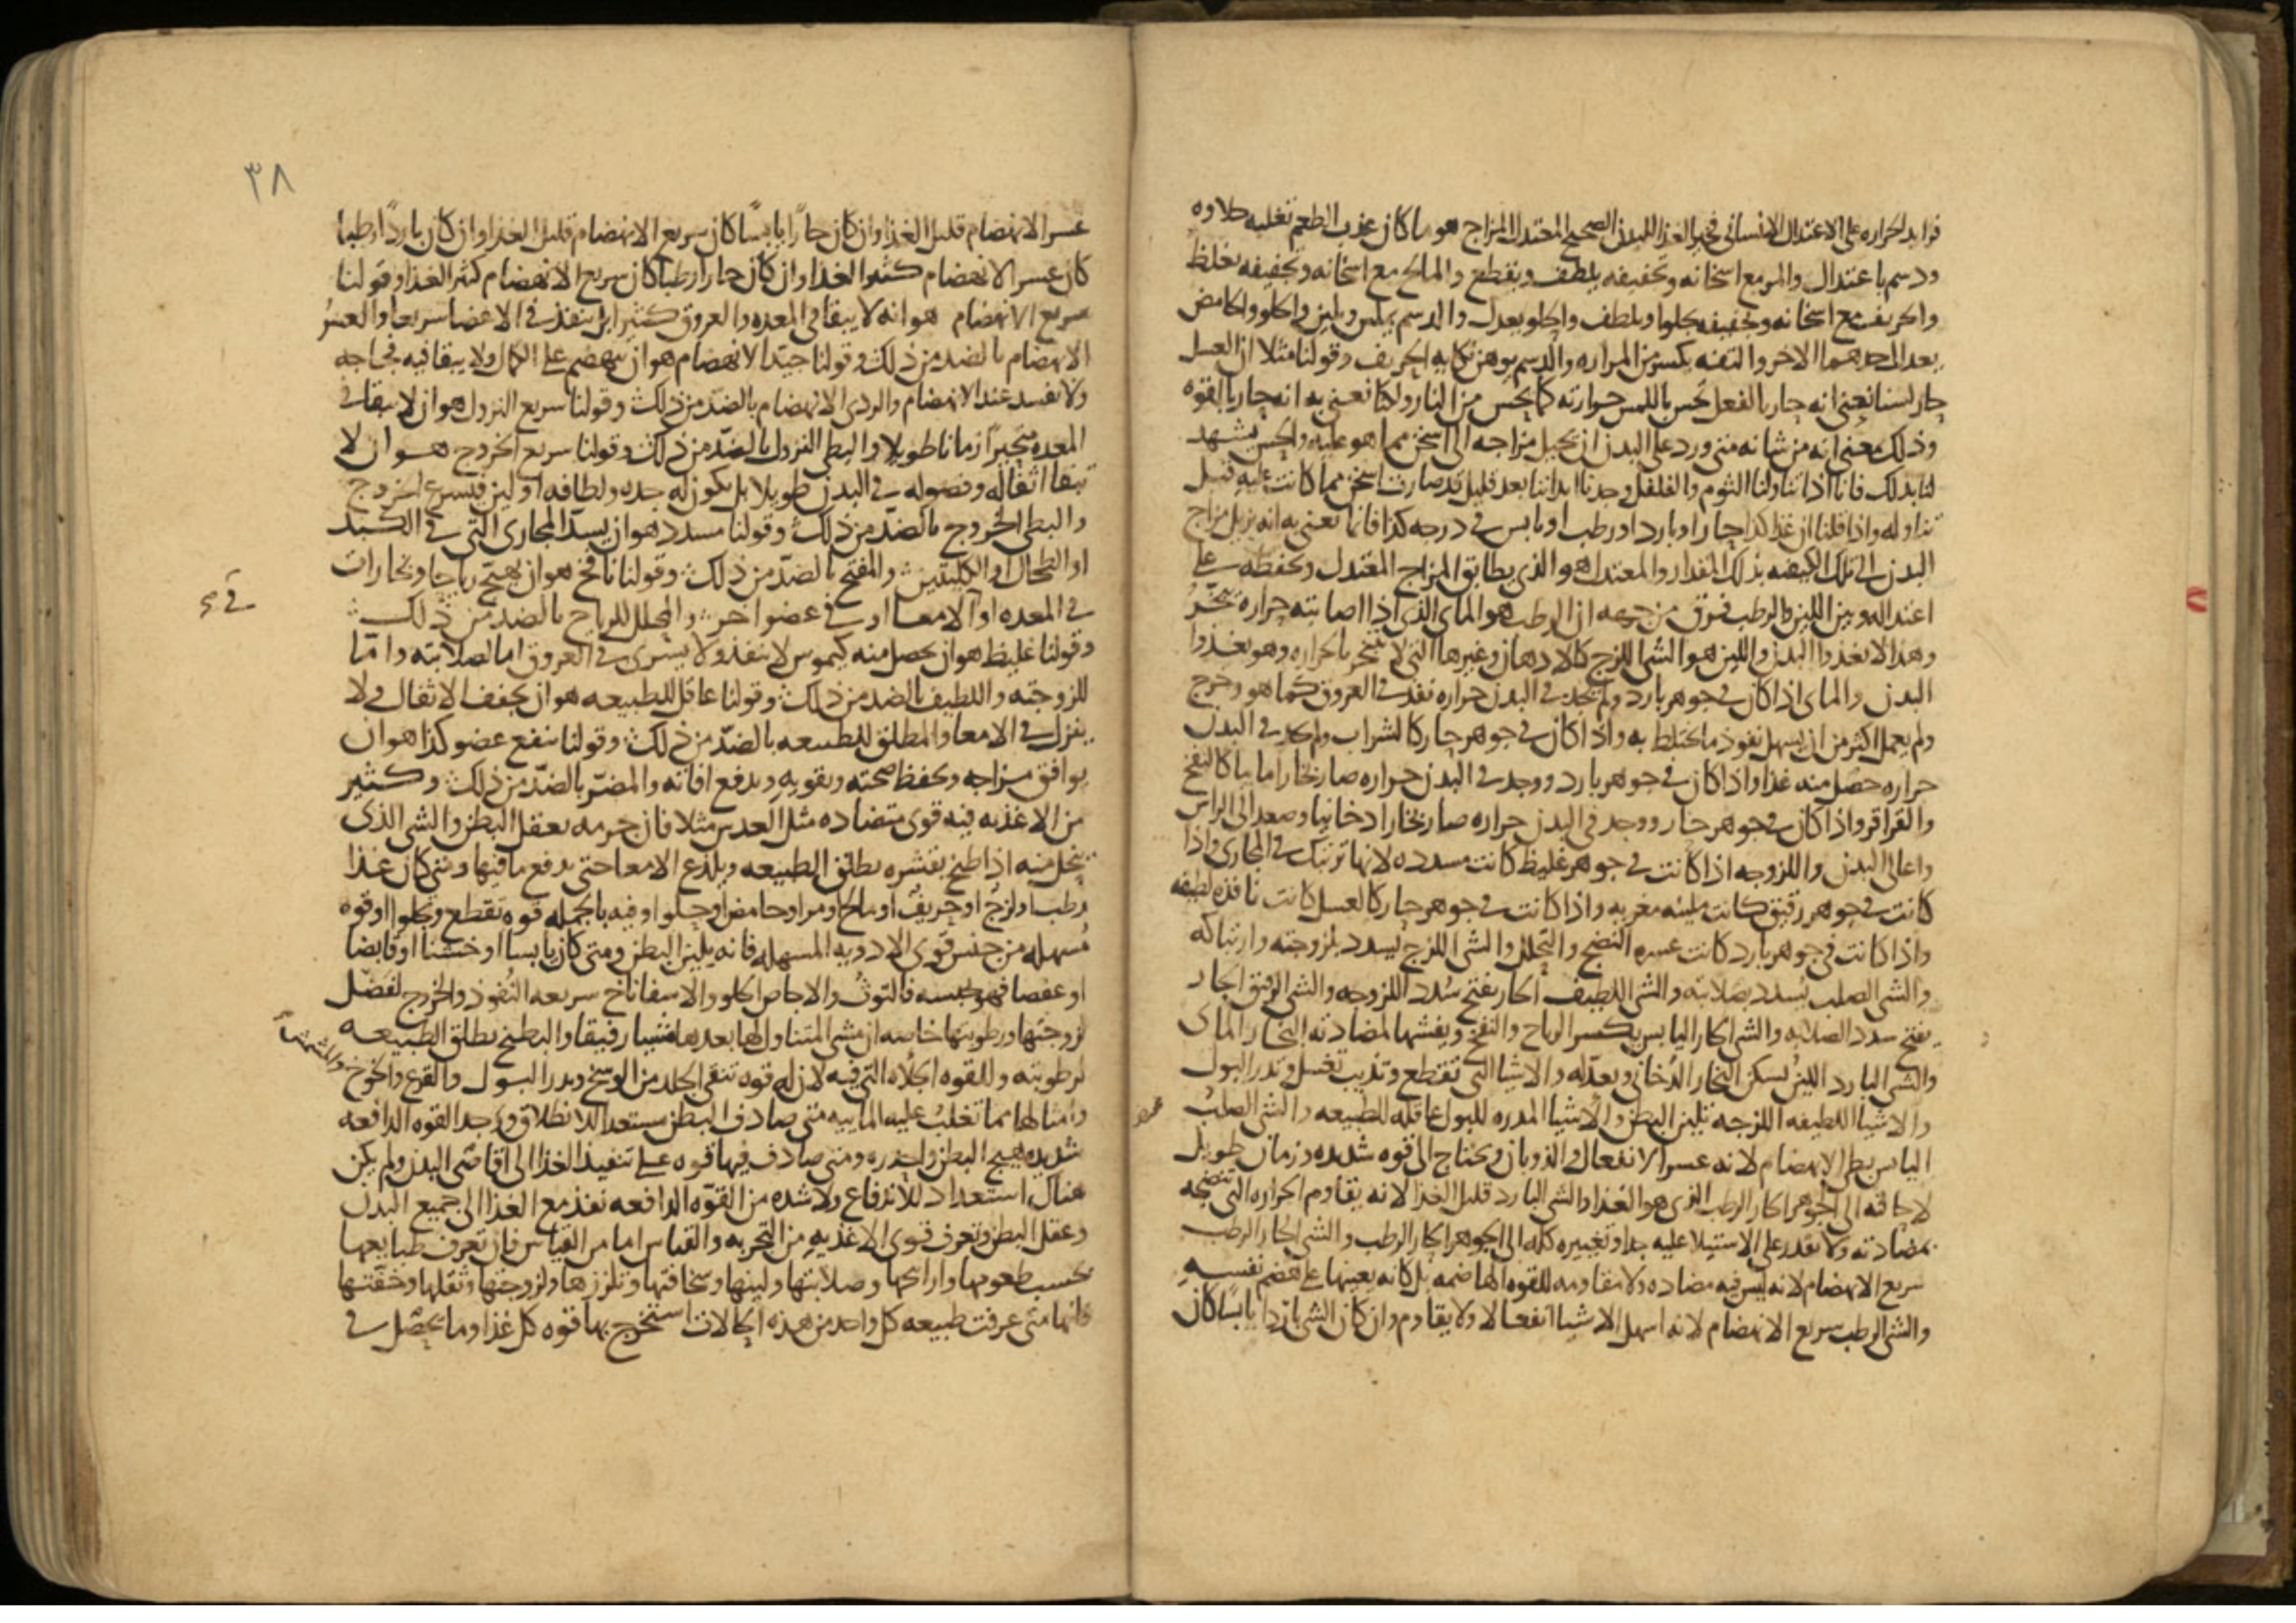 فزايد الحراره على الاعتدال الانساني فخير الغذا للبدن الصحيح المعتدل المزاج هو ما كان عذب الطعم تغلبه حلاوه
ودسم باعتدال والمر مع اسخانه وتجفيفه يلطف ويقطع والمالح مع اسخانه وتجفيفه يغلظ
والحريف مع اسخانه وتجفيفه يجلو او يلطف والحلو يعدل والدسم يملس ويلين والحلو والحامض
يعدل احدهما الاخر والتفه يكسر من المراره والدسم يوهن نكايه الحريف وقولنا مثلا ان العسل
حار لسنا نعني انه حار بالفعل تحس باللمس حرارته كما يحس من النار ولكنا نعني به انه حار بالقوه
وذلك معنى انه من شانه متى ورد على البدن ان يحيل مزاجه الى اسخن مما هو عليه والحس يشهد
لنا بذلك فانا اذا تناولنا الثوم والفلفل وجدنا ابداننا بعد قليل قد صارت اسخن مما كانت عليه قبل
تناوله واذا قلنا ان غذا كذا حار او بارد او رطب او يابس في درجه كذا فانما نعني به انه يزيل مزاج
البدن الى تلك الكيفيه بذلك المقدار والمعتدل هو الذي يطابق المزاج المعتدل ويحفظه على
اعتداله وبين اللين والرطب فرق من جهه ان الرطب هو الماي الذي اذا اصابته حراره تبخر
وهذا لا يغذوا البدن واللين هو الشي اللزج كالادهان وغيرها التي لا تتبخر بالحراره وهو يغذوا
البدن والماي اذا كان في جوهر بارد ولم تجد في البدن حراره نفذ في العروق كما هو وخرج
ولم يعمل اكثر من ان يسهل نفوذ ما يختلط به واذا كان في جوهر حار كالشراب ولم يكن في البدن
حراره حصل منه غذا واذا كان في جوهر بارد ووجد في البدن حراره صار بخارا ماييا كالنفخ
والقراقر واذا كان في جوهر حار ووجد في البدن حراره صار بخارا دخانيا وصعد الى الراس
واعالى البدن واللزوجه اذا كانت في جوهر غليظ كانت مسدده لانها ترتبك في المجاري واذا
كانت في جوهر رقيق كانت ملينه مغريه واذا كانت في جوهر حار كالعسل كانت نافذه لطيفه
واذا كانت في جوهر بارد كانت عسره النضج والتحلل والشي اللزج يسدد بلزوجته وارتباكه
والشي الصلب يسدد بصلابته والشي اللطيف الحار يفتح سدد اللزوجه والشي الرقيق الحار
يفتح سدد الصلابه والشي الحار اليابس يكسر الرياح والنفخ ويفشها لمضادته البخار الماي
والشي البارد اللين يسكن البخار الدخاني ويعدله والاشيا التي تقطع وتذيب تغسل وتدر البول
والاشيا اللطيفه اللزجه تلين البطن والاشيا المدره للبول عاقله للطبيعه والشي الصلب
اليابس بطي الانهضام لانه عسر الانفعال في الذوبان ويحتاج الى قوه شديده وزمان طويل
لاحالته الى الجوهر الحار الرطب الذي هو الغذا والشي البارد قليل الغذا لانه يقاوم الحراره التي تنضجه
بمضادته ولا تقدر على الاستيلا عليه جدا وتغييره كله الى الجوهر الحار الرطب والشي الحار الرطب
سريع الانهضام لانه ليس فيه مضاده ولا مقاومه للقوه الهاضمه بل كانه يعينها على هضم نفسه
والشي الرطب سريع الانهضام لانه اسهل الاشيا انفعالا ولا يقاوم وان كان الشي باردا يابسا كان
٣٨
عسر الانهضام قليل الغذا وان كان حارا يابسا كان سريع الانهضام قليل الغذا وان كان باردا رطبا
كان عسر الانهضام كثير الغذا وان كان حارا رطبا كان سريع الانهضام كثير الغذا وقولنا
سريع الانهضام هو انه لا يبقا في المعده والعروق كثيرا بل ينفذ في الاعضا سريعا والعسر
الانهضام بالضد من ذلك وقولنا جيد الانهضام هو ان ينهضم على الكمال ولا يبقا فيه فجاجه
ولا يفسد عند الانهضام والردي الانهضام بالضد من ذلك وقولنا سريع النزول هو ان لا يبقا في
المعده متحيرا زمانا طويلا والبطي النزول بالضد من ذلك وقولنا سريع الخروج هو ان لا
تبقا اثفاله وفضوله في البدن طويلا بل يكون له حده ولطافه او لين فيسرع الخروج
والبطي الخروج بالضد من ذلك وقولنا مسدد هو ان يسد المجاري التي في الكبد
او الطحال او الكليتين والمفتح بالضد من ذلك وقولنا نافخ هو ان يهيج رياحا وبخارات
في المعده او الامعا او في عضو اخر والمحلل للرياح بالضد من ذلك
وقولنا غليظ هو ان يحصل منه كيموس لا ينفذ ولا يسري في العروق اما لصلابته واما
للزوجته واللطيف بالضد من ذلك وقولنا عاقل للطبيعه هو ان يجفف الاثفال ولا
ينزل في الامعا والمطلق للطبيعه بالضد من ذلك وقولنا ينفع عضو كذا هو ان
يوافق مزاجه ويحفظ صحته ويقويه ويدفع افاته والمضر بالضد من ذلك وكثير
من الاغذيه فيه قوى متضاده مثل العدس مثلا فان جرمه يعقل البطن والشي الذي
ينحل منه اذا طبخ بقشره يطلق الطبيعه ويلذع الامعا حتى يدفع ما فيها ومتى كان غذا
رطب او لزج او حريف او مالح او مر او حامض او حلو او فيه بالجمله قوه تقطع وتجلوا او قوه
مسهله من جنس قوى الادويه المسهله فانه يلين البطن ومتى كان يابسا او خشنا او قابضا
او عفصا فهو يحبسه فالتوث والاجاص الحلو والاسفاناخ سريعه النفوذ والخروج لفضل
لزوجتها ورطوبتها خاصه ان مشى المتناول لها بعدها مشيا رفيقا والبطيخ يطلق الطبيعه
لرطوبته وللقوه الجلاه التي فيه لان له قوه تنقي الجلد من الوسخ ويدر البول والقرع والخوخ والمشمش
وامثالها مما تغلب عليه الماييه متى صادف البطن مستعدا للانطلاق ووجد القوه الدافعه
شديده هيج البطن واحدره ومتى صادف فيها قوه على تنفيذ الغذا الى اقاصي البدن ولم يكن
هناك استعداد للاندفاع ولا شده من القوه الدافعه نفذ مع الغذا الى جميع البدن
وعقل البطن وتعرف قوى الاغذيه من التجربه والقياس اما من القياس فان تعرف طبايعها
بحسب طعومها واراييحها وصلابتها ولينها وسخافتها وتلززها ولزوجتها وثقلها وخفتها
فانها متى عرفت طبيعه كل واحد من هذه الحالات استخرج بها قوه كل غذا وما يحصل في